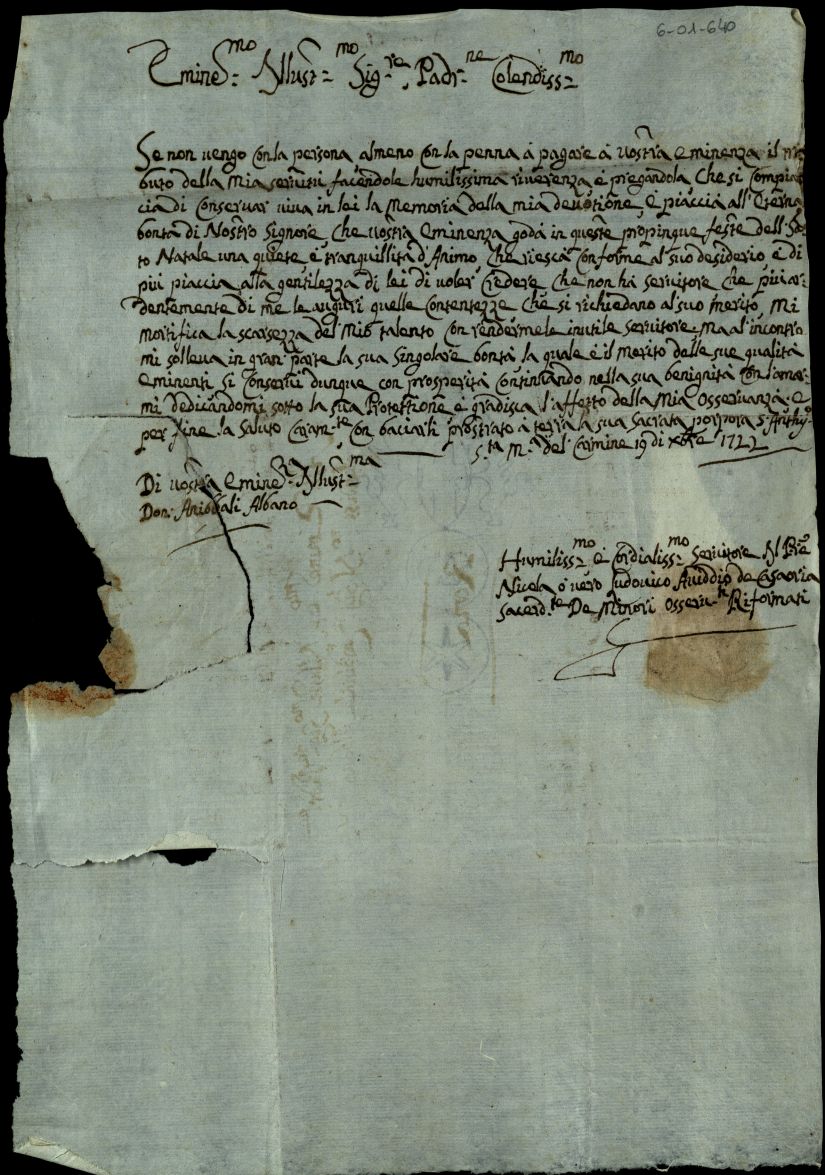 6-01-640
Emine:mo Illust:mo Sig:re, Padr:ne Colendiss:mo
Se non vengo con la persona, almeno con la penna à pagare à vostra eminenza il tri
buto della mia servitù facendole humilissima riverenza, è pregandola che si compiac
cia di conservar viva in lei la memoria della mia devotione, è piaccia all'eterna
bontà di Nostro Signore, che vostra eminenza goda in queste propinque feste dell'San
to Natale una quiete, è tranquillità d'Animo, che riesca conforme al suo desiderio, è di
più piaccia alla gentilezza di lei di voler credere che non hà servitore che più ar
dentemente di me le auguri quelle contentezze che si richiedano al suo merito, Mi
mortifica la scarsezza del mio talento con rendermele inutile servitore, Ma al'incontro
mi solleva in gran parte la sua singolare bontà la quale è il merito delle sue qualità
eminenti si conservi dunque con prosperità continuando nella sua benignità con l'amar
mi dedicandomi sotto la sua Protettione è gradisca l'affetto della Mia osservanza: e
per fine la saluto caram:te con baciarli prostrato à terra la sua sacrata porpora
S:ta M:a del Carmine 19 di Xbre 1722
Di vostra emine:za Illust:ma
Don: Anibbali Albano
Humiliss:mo è Cordialiss:mo servitore Il Pre
Nicola ò vero Ludovico Aviddio de Casoria
Sacerd:te De Minori osserv:ti Riformati
Roma